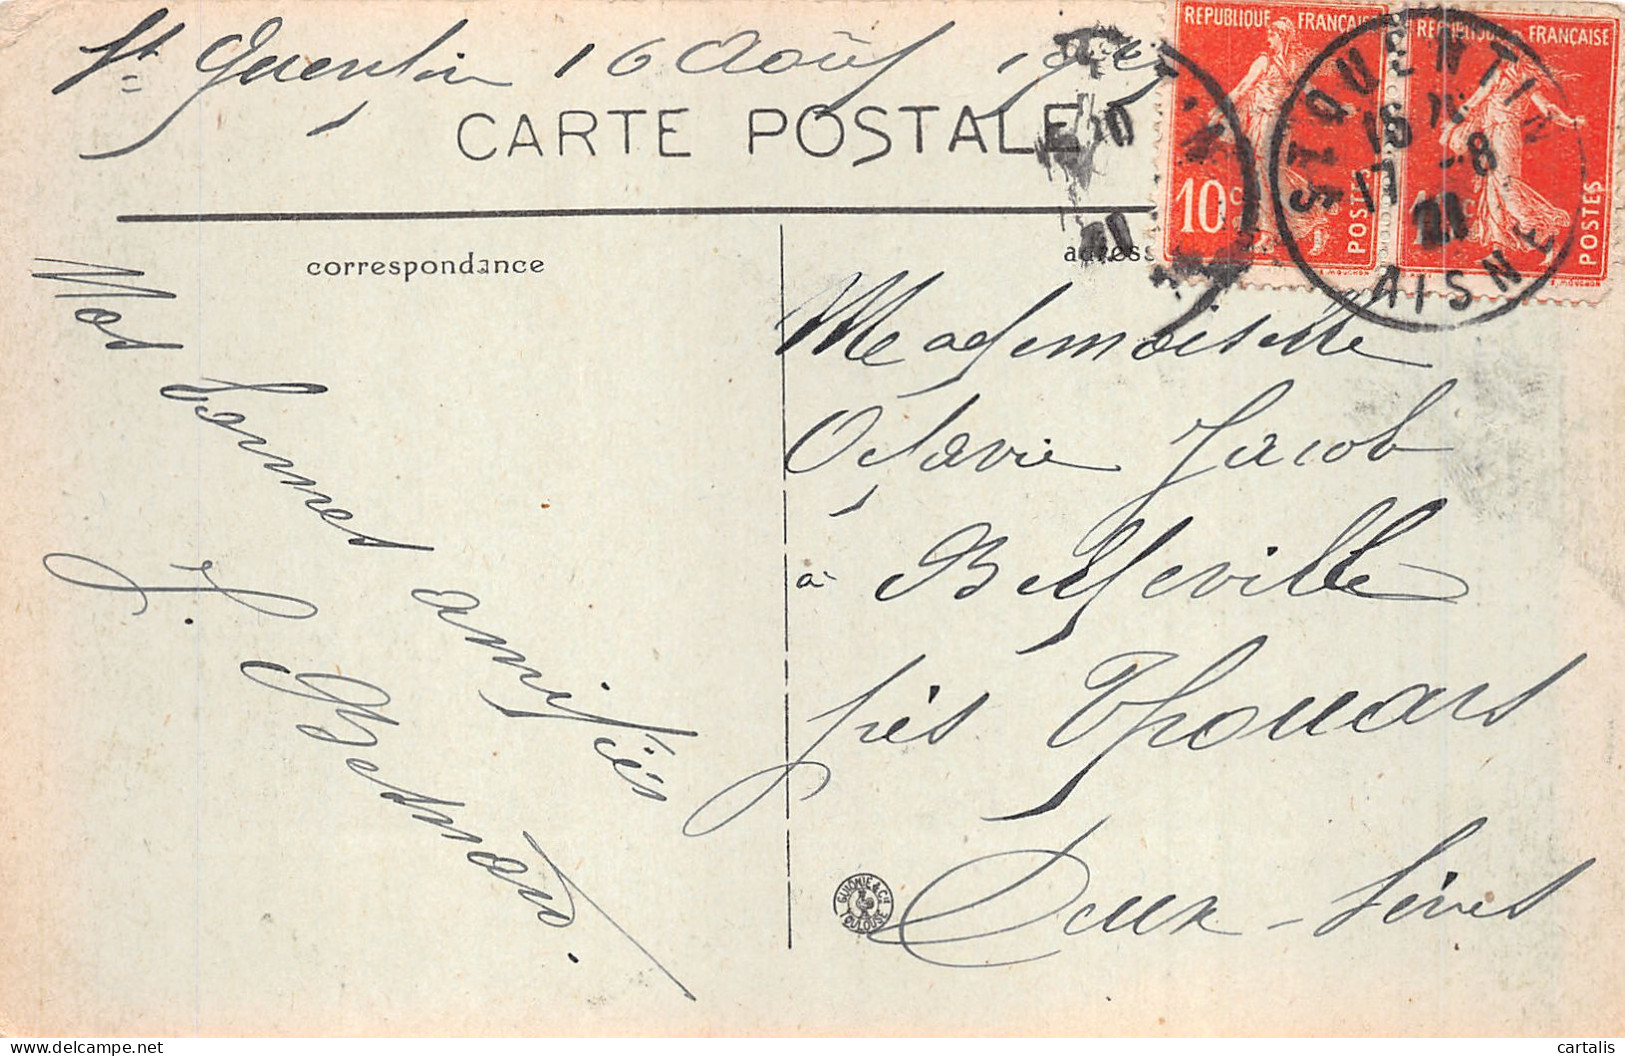 St Quentin 16 Août
CARTE POSTALE
correspondance
adress
RÉPUBLIQUE FRANÇAISE
10c
POSTES
RÉPUBLIQUE FRANÇAISE
POSTES
ST QUENTIN
16
17 -8
21
AISNE
Mademoiselle
Octavie Jacob
à Belleville
près Thouars
Deux-Sèvres
Nos bonnes amitiés
GUIONIE & Cie
TOULOUSE
cartalis
www.delcampe.net